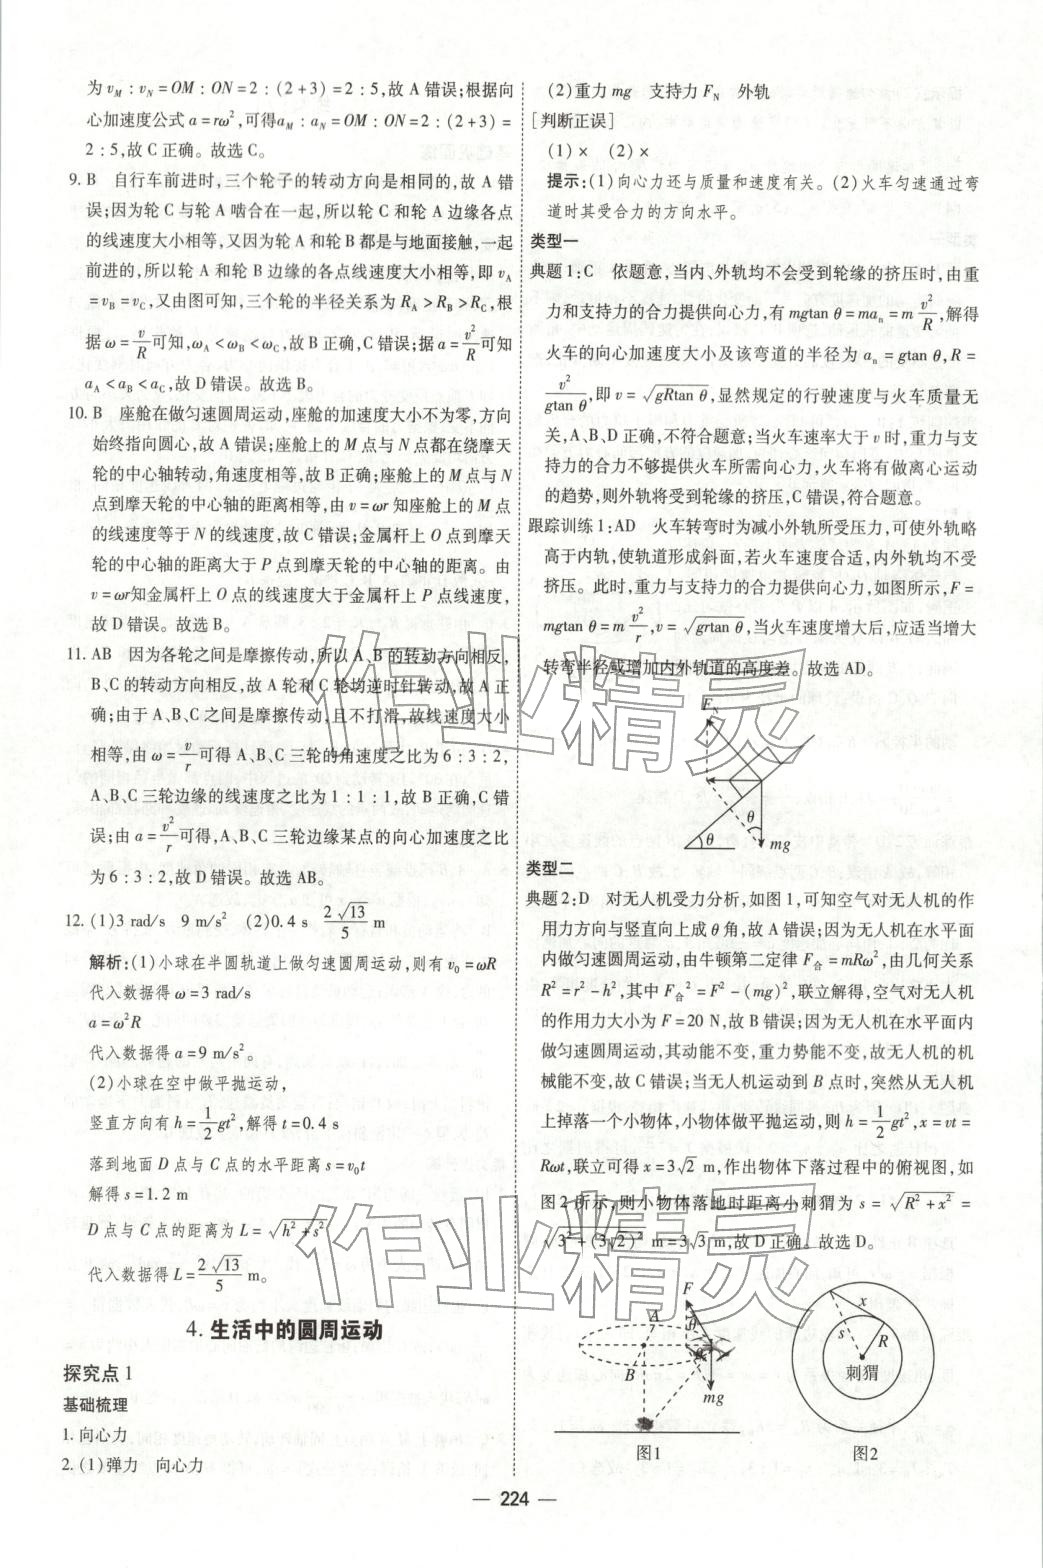 为 v_M : v_N = OM : ON = 2 : (2+3) = 2 : 5,故 A 错误;根据向
心加速度公式 a = rω²,可得 a_M : a_N = OM : ON = 2 : (2+3) =
2 : 5,故 C 正确。故选 C。
9. B 自行车前进时,三个轮子的转动方向是相同的,故 A 错
误;因为轮 C 与轮 A 啮合在一起,所以轮 C 和轮 A 边缘各点
的线速度大小相等,又因为轮 A 和轮 B 都是与地面接触,一起
前进的,所以轮 A 和轮 B 边缘的各点线速度大小相等,即 v_A
= v_B = v_C,又由图可知,三个轮的半径关系为 R_A > R_B > R_C,根
据 ω = v/R 可知,ω_A < ω_B < ω_C,故 B 正确,C 错误;据 a = v²/R 可知
a_A < a_B < a_C,故 D 错误。故选 B。
10. B 座舱在做匀速圆周运动,座舱的加速度大小不为零,方向
始终指向圆心,故 A 错误;座舱上的 M 点与 N 点都在绕摩天
轮的中心轴转动,角速度相等,故 B 正确;座舱上的 M 点与 N
点到摩天轮的中心轴的距离相等,由 v = ωr 知座舱上的 M 点
的线速度等于 N 的线速度,故 C 错误;金属杆上 O 点到摩天
轮的中心轴的距离大于 P 点到摩天轮的中心轴的距离。由
v = ωr 知金属杆上 O 点的线速度大于金属杆上 P 点线速度,
故 D 错误。故选 B。
11. AB 因为各轮之间是摩擦传动,所以 A、B 的转动方向相反,
B、C 的转动方向相反,故 A 轮和 C 轮均逆时针转动,故 A 正
确;由于 A、B、C 之间是摩擦传动,且不打滑,故线速度大小
相等,由 ω = v/r 可得 A、B、C 三轮的角速度之比为 6 : 3 : 2,
A、B、C 三轮边缘的线速度之比为 1 : 1 : 1,故 B 正确,C 错
误;由 a = v²/r 可得,A、B、C 三轮边缘某点的向心加速度之比
为 6 : 3 : 2,故 D 错误。故选 AB。
12. (1)3 rad/s 9 m/s² (2)0.4 s 2√13/5 m
解析:(1)小球在半圆轨道上做匀速圆周运动,则有 v₀ = ωR
代入数据得 ω = 3 rad/s
a = ω²R
代入数据得 a = 9 m/s²。
(2)小球在空中做平抛运动,
竖直方向有 h = 1/2 gt²,解得 t = 0.4 s
落到地面 D 点与 C 点的水平距离 s = v₀t
解得 s = 1.2 m
D 点与 C 点的距离为 L = √(h² + s²)
代入数据得 L = 2√13/5 m。
4. 生活中的圆周运动
探究点 1
基础梳理
1. 向心力
2. (1)弹力 向心力
(2)重力 mg 支持力 F_N 外轨
[判断正误]
(1)× (2)×
提示:(1)向心力还与质量和速度有关。(2)火车匀速通过弯
道时其受合力的方向水平。
类型一
典题 1:C 依题意,当内、外轨均不会受到轮缘的挤压时,由重
力和支持力的合力提供向心力,有 mgtan θ = ma_n = m v²/R,解得
火车的向心加速度大小及该弯道的半径为 a_n = gtan θ,R =
v²/(gtan θ),即 v = √(gRtan θ),显然规定的行驶速度与火车质量无
关,A、B、D 正确,不符合题意;当火车速率大于 v 时,重力与支
持力的合力不够提供火车所需向心力,火车将有做离心运动
的趋势,则外轨将受到轮缘的挤压,C 错误,符合题意。
跟踪训练 1:AD 火车转弯时为减小外轨所受压力,可使外轨略
高于内轨,使轨道形成斜面,若火车速度合适,内外轨均不受
挤压。此时,重力与支持力的合力提供向心力,如图所示,F =
mgtan θ = m v²/r,v = √(grtan θ),当火车速度增大后,应适当增大
转弯半径或增加内外轨道的高度差。故选 AD。
F_N
θ
θ
mg
类型二
典题 2:D 对无人机受力分析,如图 1,可知空气对无人机的作
用力方向与竖直向上成 θ 角,故 A 错误;因为无人机在水平面
内做匀速圆周运动,由牛顿第二定律 F_合 = mRω²,由几何关系
R² = r² − h²,其中 F_合² = F² − (mg)²,联立解得,空气对无人机
的作用力大小为 F = 20 N,故 B 错误;因为无人机在水平面内
做匀速圆周运动,其动能不变,重力势能不变,故无人机的机
械能不变,故 C 错误;当无人机运动到 B 点时,突然从无人机
上掉落一个小物体,小物体做平抛运动,则 h = 1/2 gt²,x = vt =
Rωt,联立可得 x = 3√2 m,作出物体下落过程中的俯视图,如
图 2 所示,则小物体落地时距离小刺猬为 s = √(R² + x²) =
√(3² + (3√2)²) m = 3√3 m,故 D 正确。故选 D。
F
A
θ
B
mg
图1
x
s
R
刺猬
图2
— 224 —
作业精灵
作业精灵